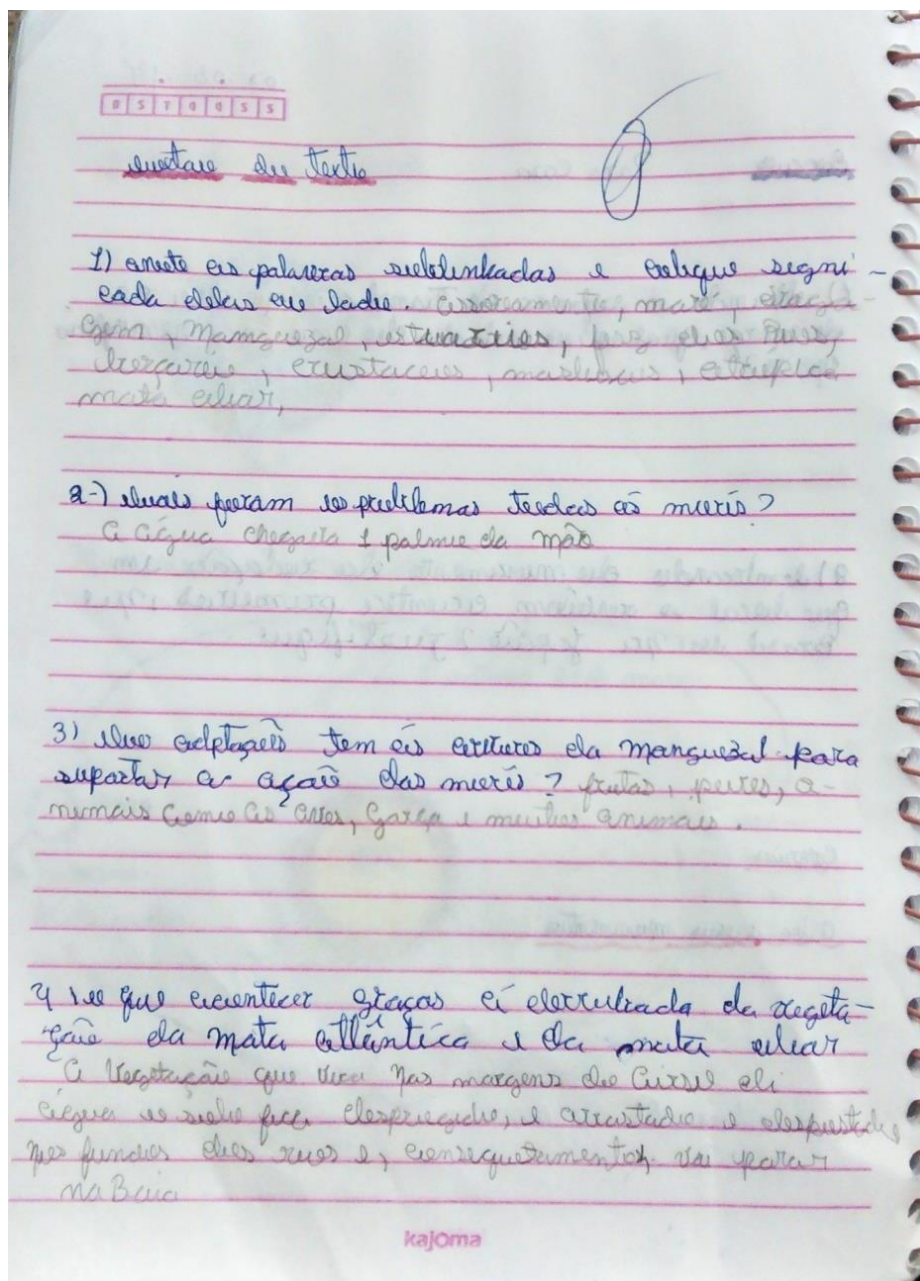 D S T Q Q S S
questão du texto
1) anote as palavras sublinkadas e coloque signi-
cada delas ao lado. assoreamento, maré, estag
em, Manguezal, estuarios, foz dos rios,
berçario, crustaceos, moluscos,
mata ciliar,
2-) quais foram os problemas
A água chegava 1 palmo da mão
3) Que adptações tem as da manguezal para
suportar a ação das ? frutas, peixes, a-
nimais como as aves, Garça e muitos animais.
4 o que acontecer graças á derrubada da vegeta-
ção da mata atlântica e da mata ciliar
A Vegetação que vive nas margens do Curso di
água o solo fica despregado, e arrastado e
nos fundos dos rios e, vai parar
na Baia
kajoma